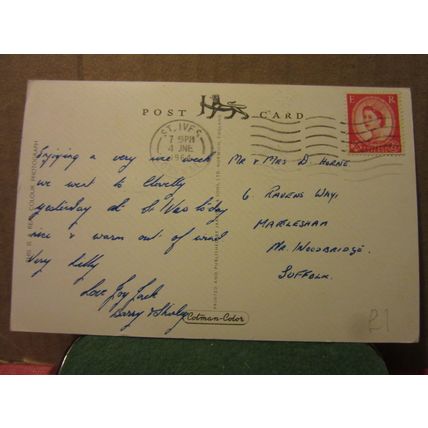 POST CARD
ST. IVES
7 PM
4 JNE
E R
Enjoying a very nice week
we went to Clovelly
yesterday at St Ives today
nice & warm out of wind
Very hilly
Love Joy Jack
Barry &
Mr & Mrs D. Horne
6, Ravens Way,
Martlesham
Nr. Woodbridge.
Suffolk.
THIS IS A REAL COLOUR PHOTOGRAPH
Cotman-Color
£1